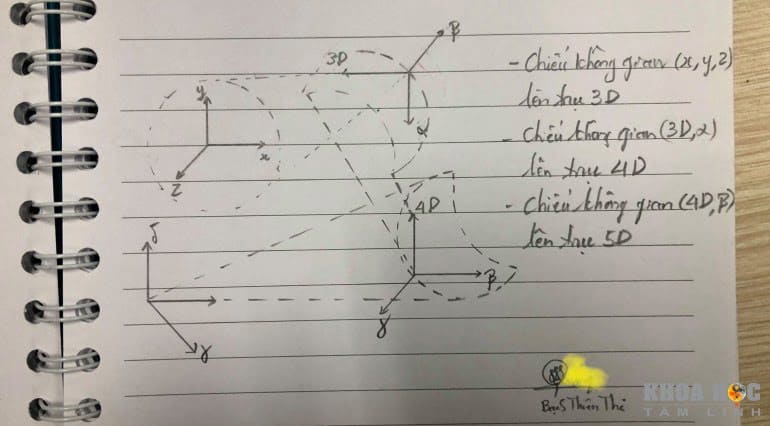 - Chiếu không gian (x, y, z)
lên trục 3D
- Chiếu không gian (3D, α)
lên trục 4D
- Chiếu không gian (4D, β)
lên trục 5D
3D
β
α
y
x
z
4D
β
γ
δ
γ
KHOA HỌC
TÂM LINH